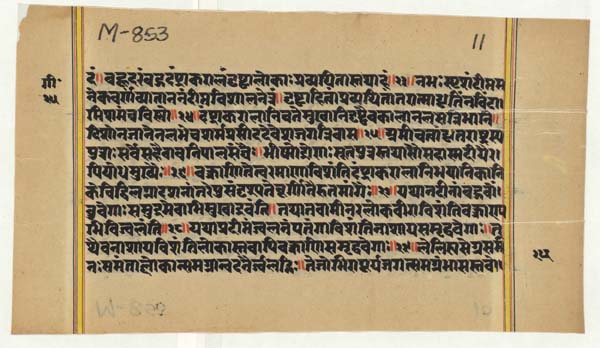 M-853
11
रं॥ बहूदरं बहुदंष्ट्राकरालं दृष्ट्वा लोकाः प्रव्यथितास्तथाहं॥२३॥ नभःस्पृशं दीप्तम
गी॰
नेकवर्णं व्यात्ताननं दीप्तविशालनेत्रं॥ दृष्ट्वा हि त्वा प्रव्यथितांतरात्मा धृतिं न विंदा
२५
मि शमं च विष्णो॥२४॥ दंष्ट्राकरालानि च ते मुखानि दृष्ट्वैव कालानलसन्निभानि॥
दिशो न जाने न लभे च शर्म प्रसीद देवेश जगन्निवास॥२५॥ अमी च त्वां धृतराष्ट्रस्य
पुत्राः सर्वे सहैवावनिपालसंघैः॥ भीष्मो द्रोणः सूतपुत्रस्तथासौ सहास्मदीयैर
पि योधमुख्यैः॥२६॥ वक्त्राणि ते त्वरमाणा विशंति दंष्ट्राकरालानि भयानकानि॥
केचिद्विलग्ना दशनांतरेषु संदृश्यंते चूर्णितैरुत्तमांगैः॥२७॥ यथा नदीनां बहवों
बुवेगाः समुद्रमेवाभिमुखा द्रवंति॥ तथा तवामी नरलोकवीरा विशंति वक्त्राण्य
भिविज्वलंति॥२८॥ यथा प्रदीप्तं ज्वलनं पतंगा विशंति नाशाय समृद्धवेगाः॥ त
थैव नाशाय विशंति लोकास्तवापि वक्त्राणि समृद्धवेगाः॥२९॥ लेलिह्यसे ग्रसमा
नः समंताल्लोकान्समग्रान्वदनैर्ज्वलद्भिः॥ तेजोभिरापूर्य जगत्समग्रं भासस्तवो